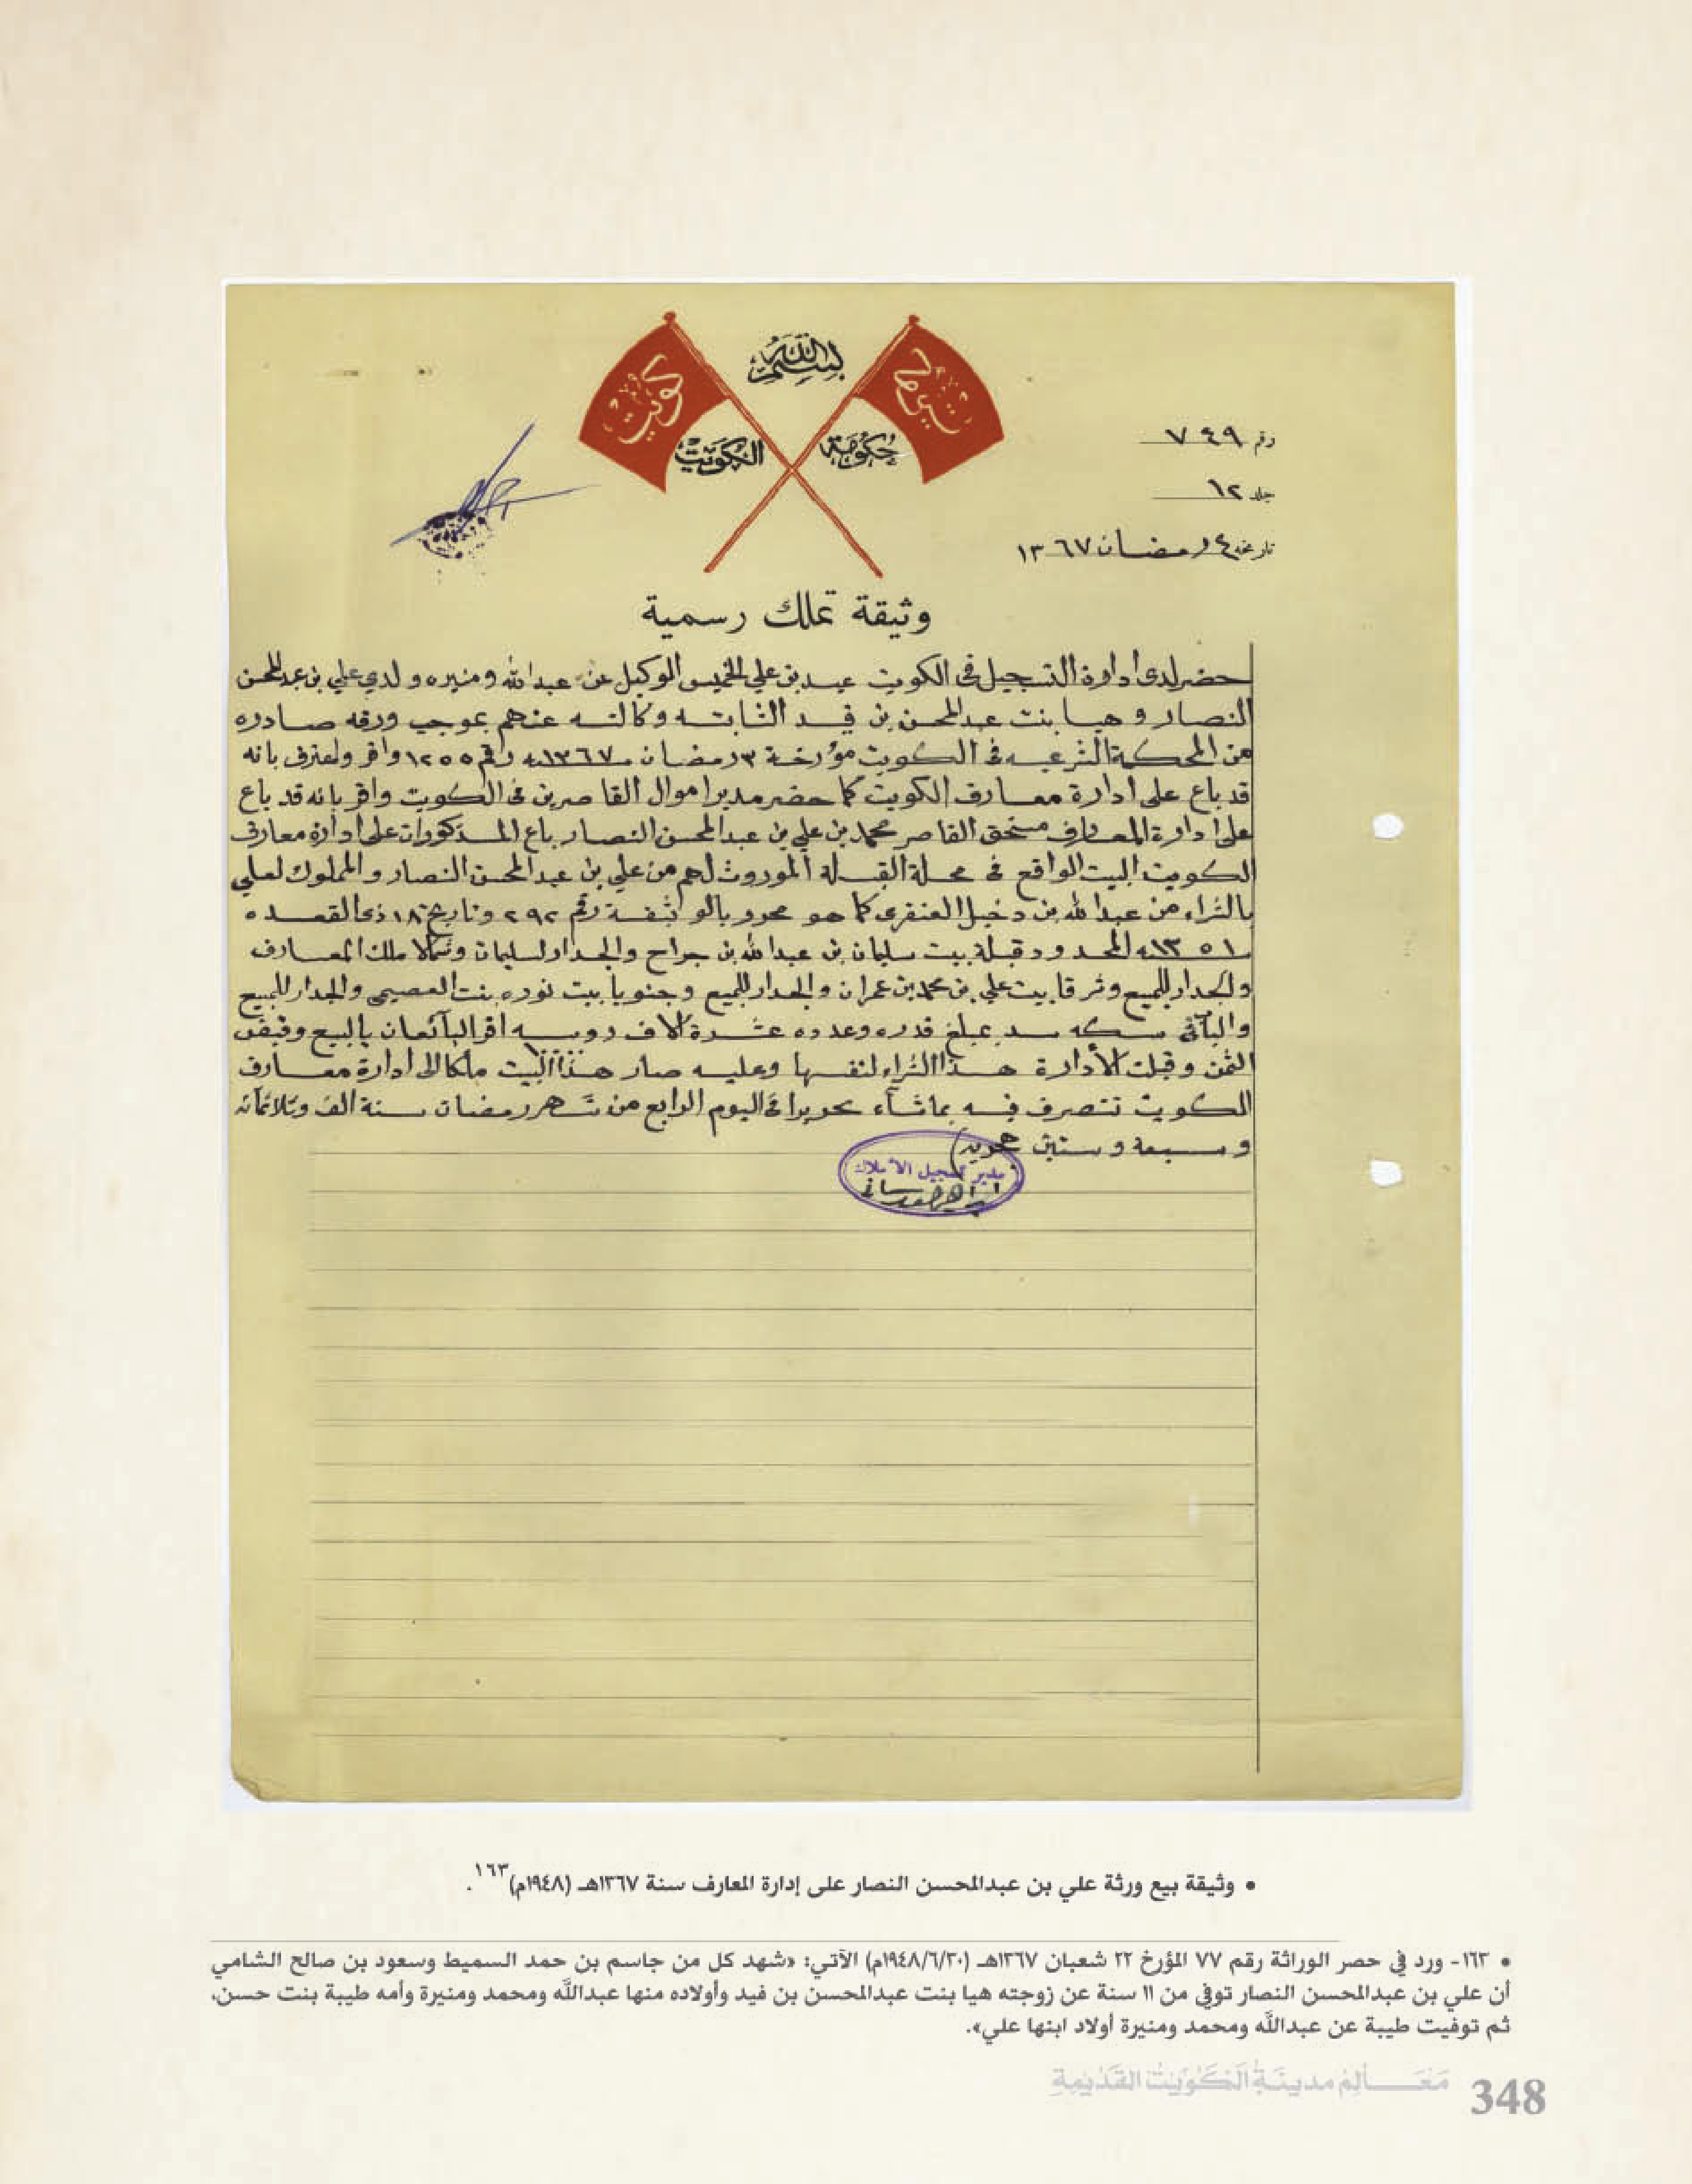 بسم الله
كويت
كويت
حكومة الكويت
رقم ٧٤٩
جلد ١٢
تاريخه ٤ رمضان ١٣٦٧
وثيقة تملك رسمية
حضر لدى ادارة التسجيل في الكويت عيد بن علي الخميس الوكيل عن عبدالله ومنيره ولدي علي بن عبدالمحسن
النصار وهيا بنت عبدالمحسن بن فيد الثابته وكالته عنهم بموجب ورقه صادره
من المحكمة الشرعيه في الكويت مؤرخة ٣ رمضان ١٣٦٧ه رقم ١٢٥٥ واقر واعترف بانه
قد باع على ادارة معارف الكويت كما حضر مدير اموال القاصرين في الكويت واقر بانه قد باع
على ادارة المعارف مستحق القاصر محمد بن علي بن عبدالمحسن النصار باع المذكورات على ادارة معارف
الكويت البيت الواقع في محلة القبله الموروث لهم من علي بن عبدالمحسن النصار والمملوك لعلي
بالشراء من عبدالله بن دخيل العنقري كما هو محرر بالوثيقة رقم ٢٩٢ وتاريخ ١٨ ذى القعده
١٣٥١ه المحدود قبلة بيت سليمان بن عبدالله بن جراح والجدار لسليمان وشمالا ملك المعارف
والجدار للمبيع وشرقا بيت علي بن محمد بن عمران والجدار للمبيع وجنوبا بيت نوره بنت العصيمي والجدار للمبيع
والباقي سكه سد بمبلغ قدره وعدده عشرة الاف روبيه اقر البائعان بالبيع وقبض
الثمن وقبلت الأدارة هذا الشراء لنفسها وعليه صار هذا البيت ملكا الى ادارة معارف
الكويت تتصرف فيه بما تشاء تحريرا في اليوم الرابع من شهر رمضان سنة الف وثلاثمائه
وسبعة وستين هجريه
مدير تسجيل الأملاك
• وثيقة بيع ورثة علي بن عبدالمحسن النصار على إدارة المعارف سنة ١٣٦٧هـ (١٩٤٨م)١٦٣.
• ١٦٣- ورد في حصر الوراثة رقم ٧٧ المؤرخ ٢٢ شعبان ١٣٦٧هـ (١٩٤٨/٦/٣٠م) الآتي: «شهد كل من جاسم بن حمد السميط وسعود بن صالح الشامي
أن علي بن عبدالمحسن النصار توفي من ١١ سنة عن زوجته هيا بنت عبدالمحسن بن فيد وأولاده منها عبدالله ومحمد ومنيرة وأمه طيبة بنت حسن،
ثم توفيت طيبة عن عبدالله ومحمد ومنيرة أولاد ابنها علي».
مَعَالِمُ مدينَةِ الكُوَيْت القَدِيمَةِ
348